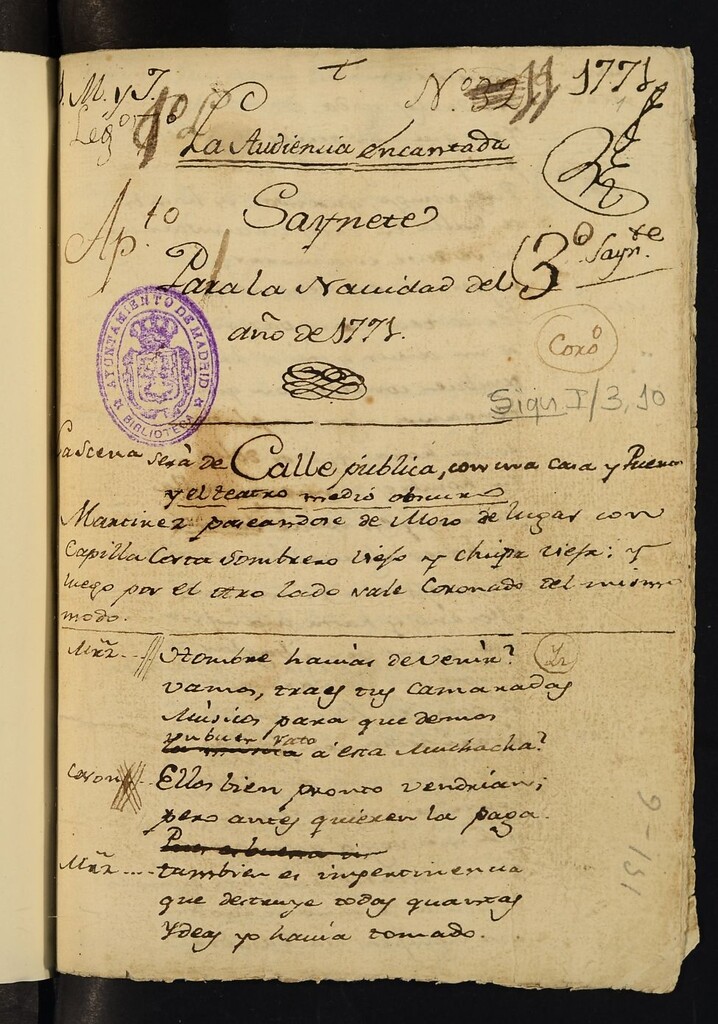 J. M. y J. N.º 11 1771
Leg.º
La Audiencia encantada
Ap.to Saynete 3º Sayn.te
Para la Nauidad del
año de 1771.
Coroº
AYUNTAMIENTO DE MADRID
BIBLIOTECA
Sign. I/3, 10
La Scena será de Calle publica, con una casa y Puerta
y el teatro medio obscuro
Martinez paseandose de Mozo de lugar con
Capilla Corta Sombrero viejo y chupa vieja: y
luego por el otro lado sale Coronado del mismo
modo.
Mrz̃ Hombre hauias de venir?
vamos, traes tus camaradas
Músicos para que demos
un buen rato
à esta Muchacha?
Coron Ellos bien pronto vendrian;
pero antes quieren la paga.
Mrz̃ tambien es impertinencia
que destruye todas quantas
Ydeas yo hauia tomado.
9-151